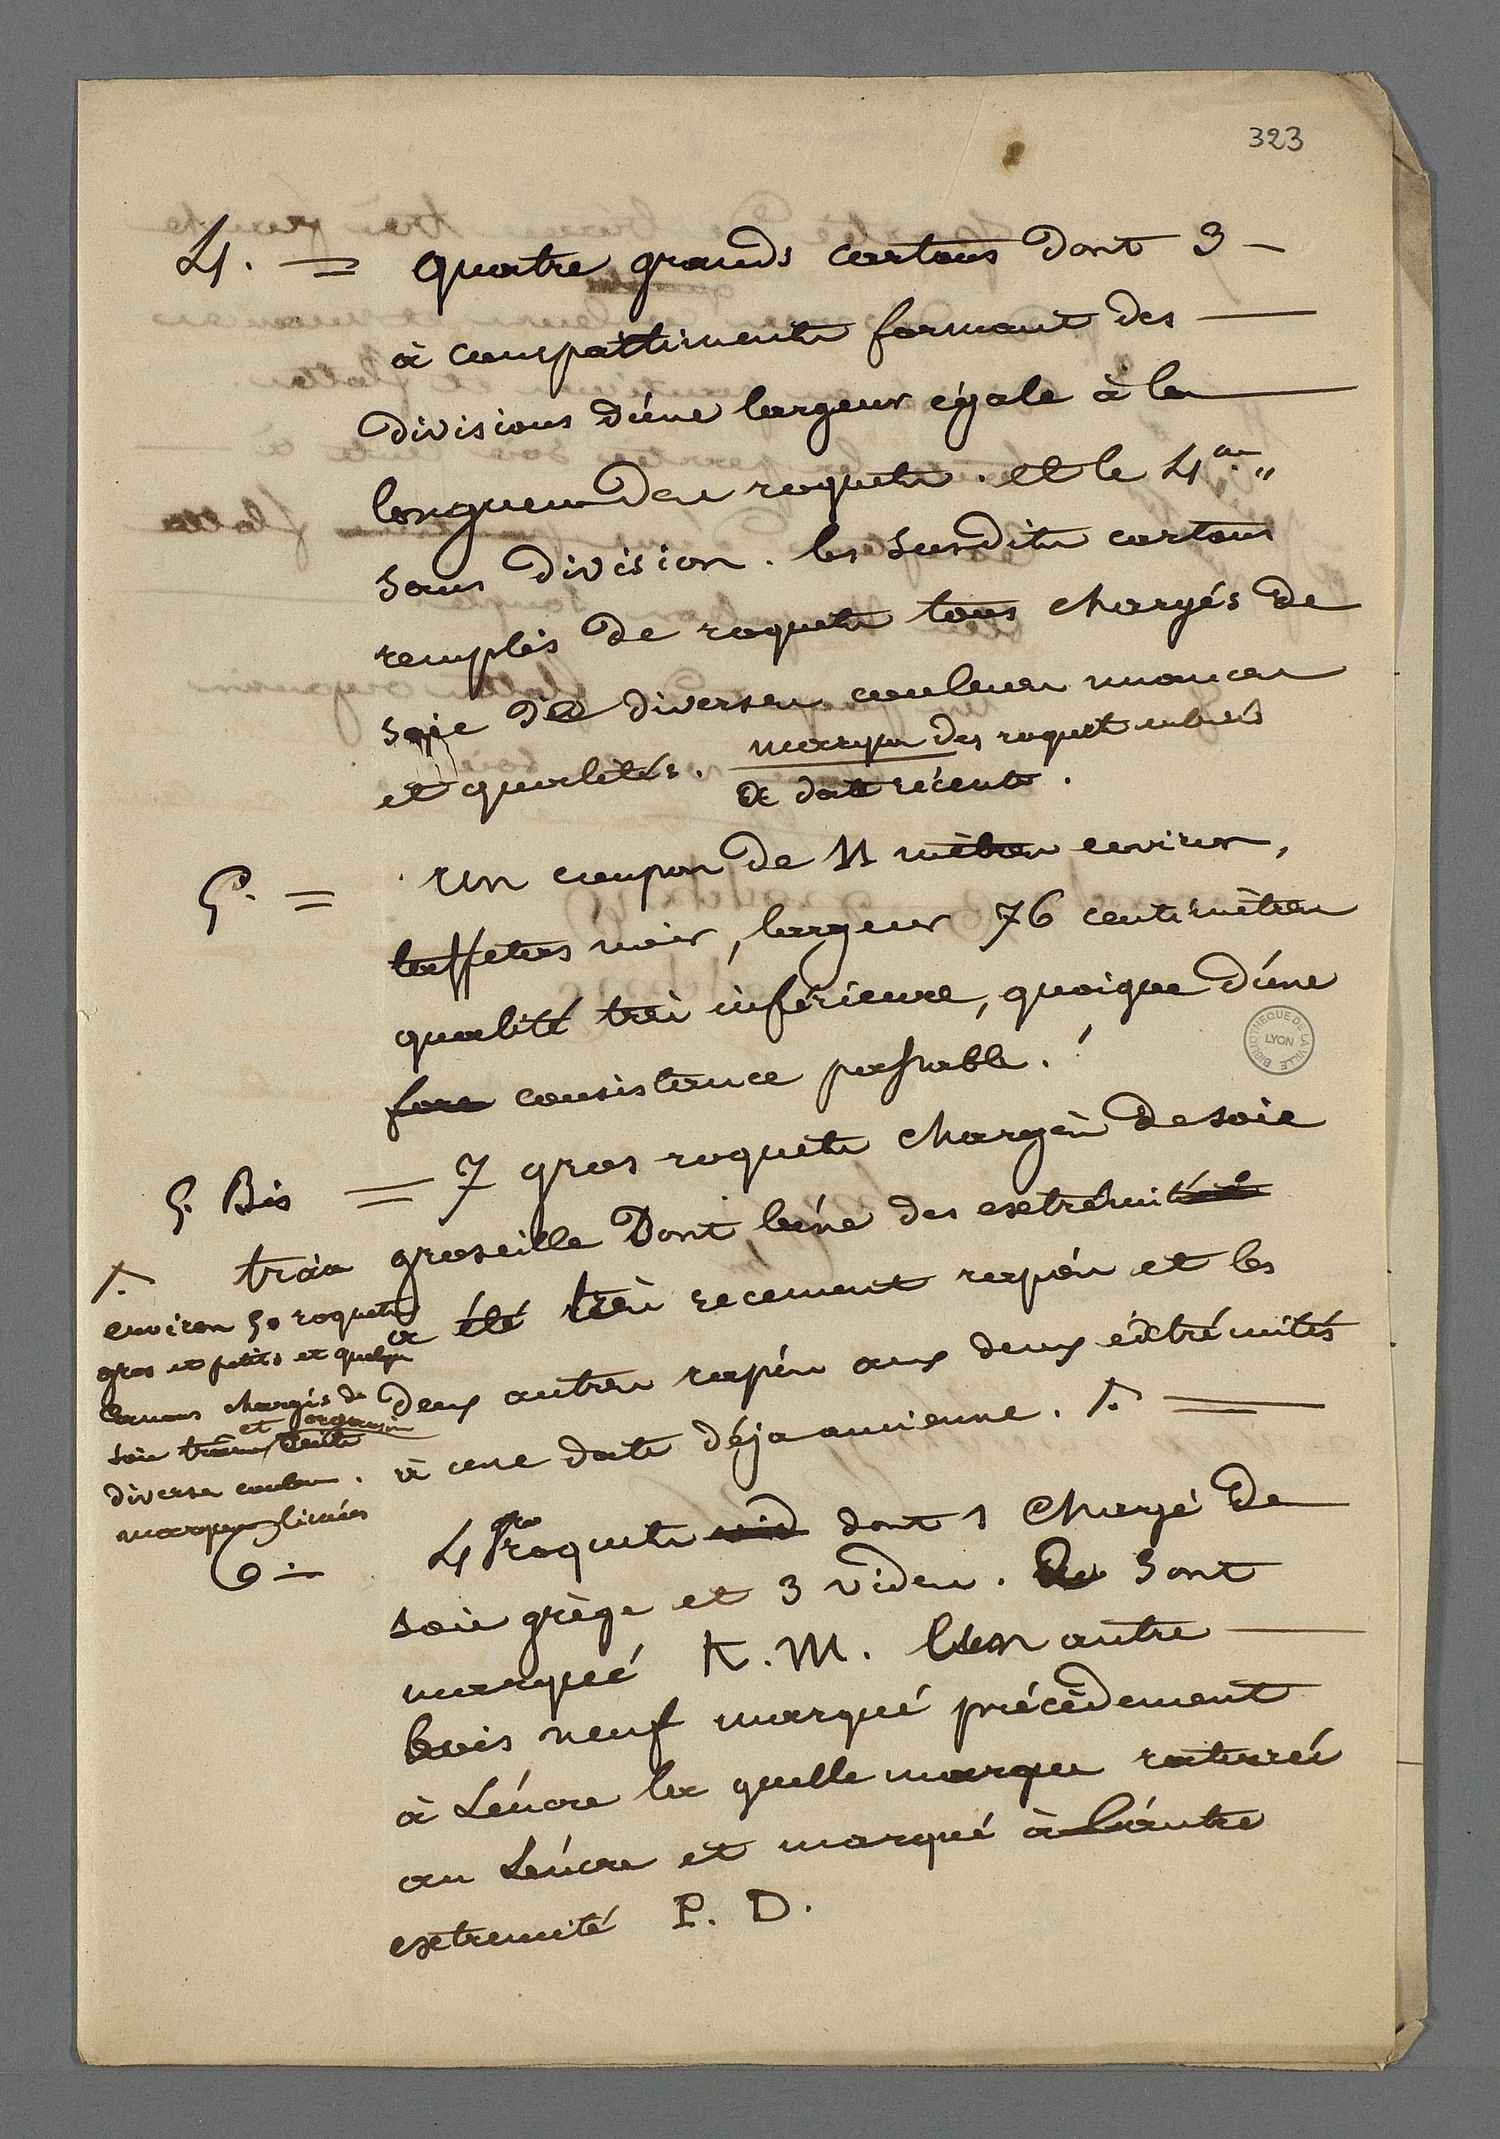 323
4. = quatre grands cartons dont 3 —
à compartiments formant des —
divisions d'une largeur égale à la —
longueur des roquets. et le 4e "
sans division. les susdits cartons
remplis de roquets tous chargés de
soie de diverses couleurs nuances
et qualités. marques des roquets enlevés
de date récente.
5. = Un coupon de 11 mètres environ,
taffetas noir, largeur 76 centimètres
qualité très inférieure, quoique d'une
fore consistance passable.
5. Bis = 7 gros roquets chargés de soie
groseille Dont l'une des extrémités
a été très recement rapée et les
deux autres rapés aux deux éxtrémités
à une date déja ancienne. =
environ 50 roquets
gros et petits et quelques
canons chargés de
et organsin
soie trames teinte
diverses couleurs.
marques limées
6 = 4 gros roquets vid dont 1 chargé de
soie grège et 3 vides. sont
marqué K. M. Un autre —
bois neuf marqué précédement
à L'encre la quelle marque raturée
au L'encre et marqué à l'autre
extremité P. D.
BIBLIOTHEQUE DE LA VILLE
LYON